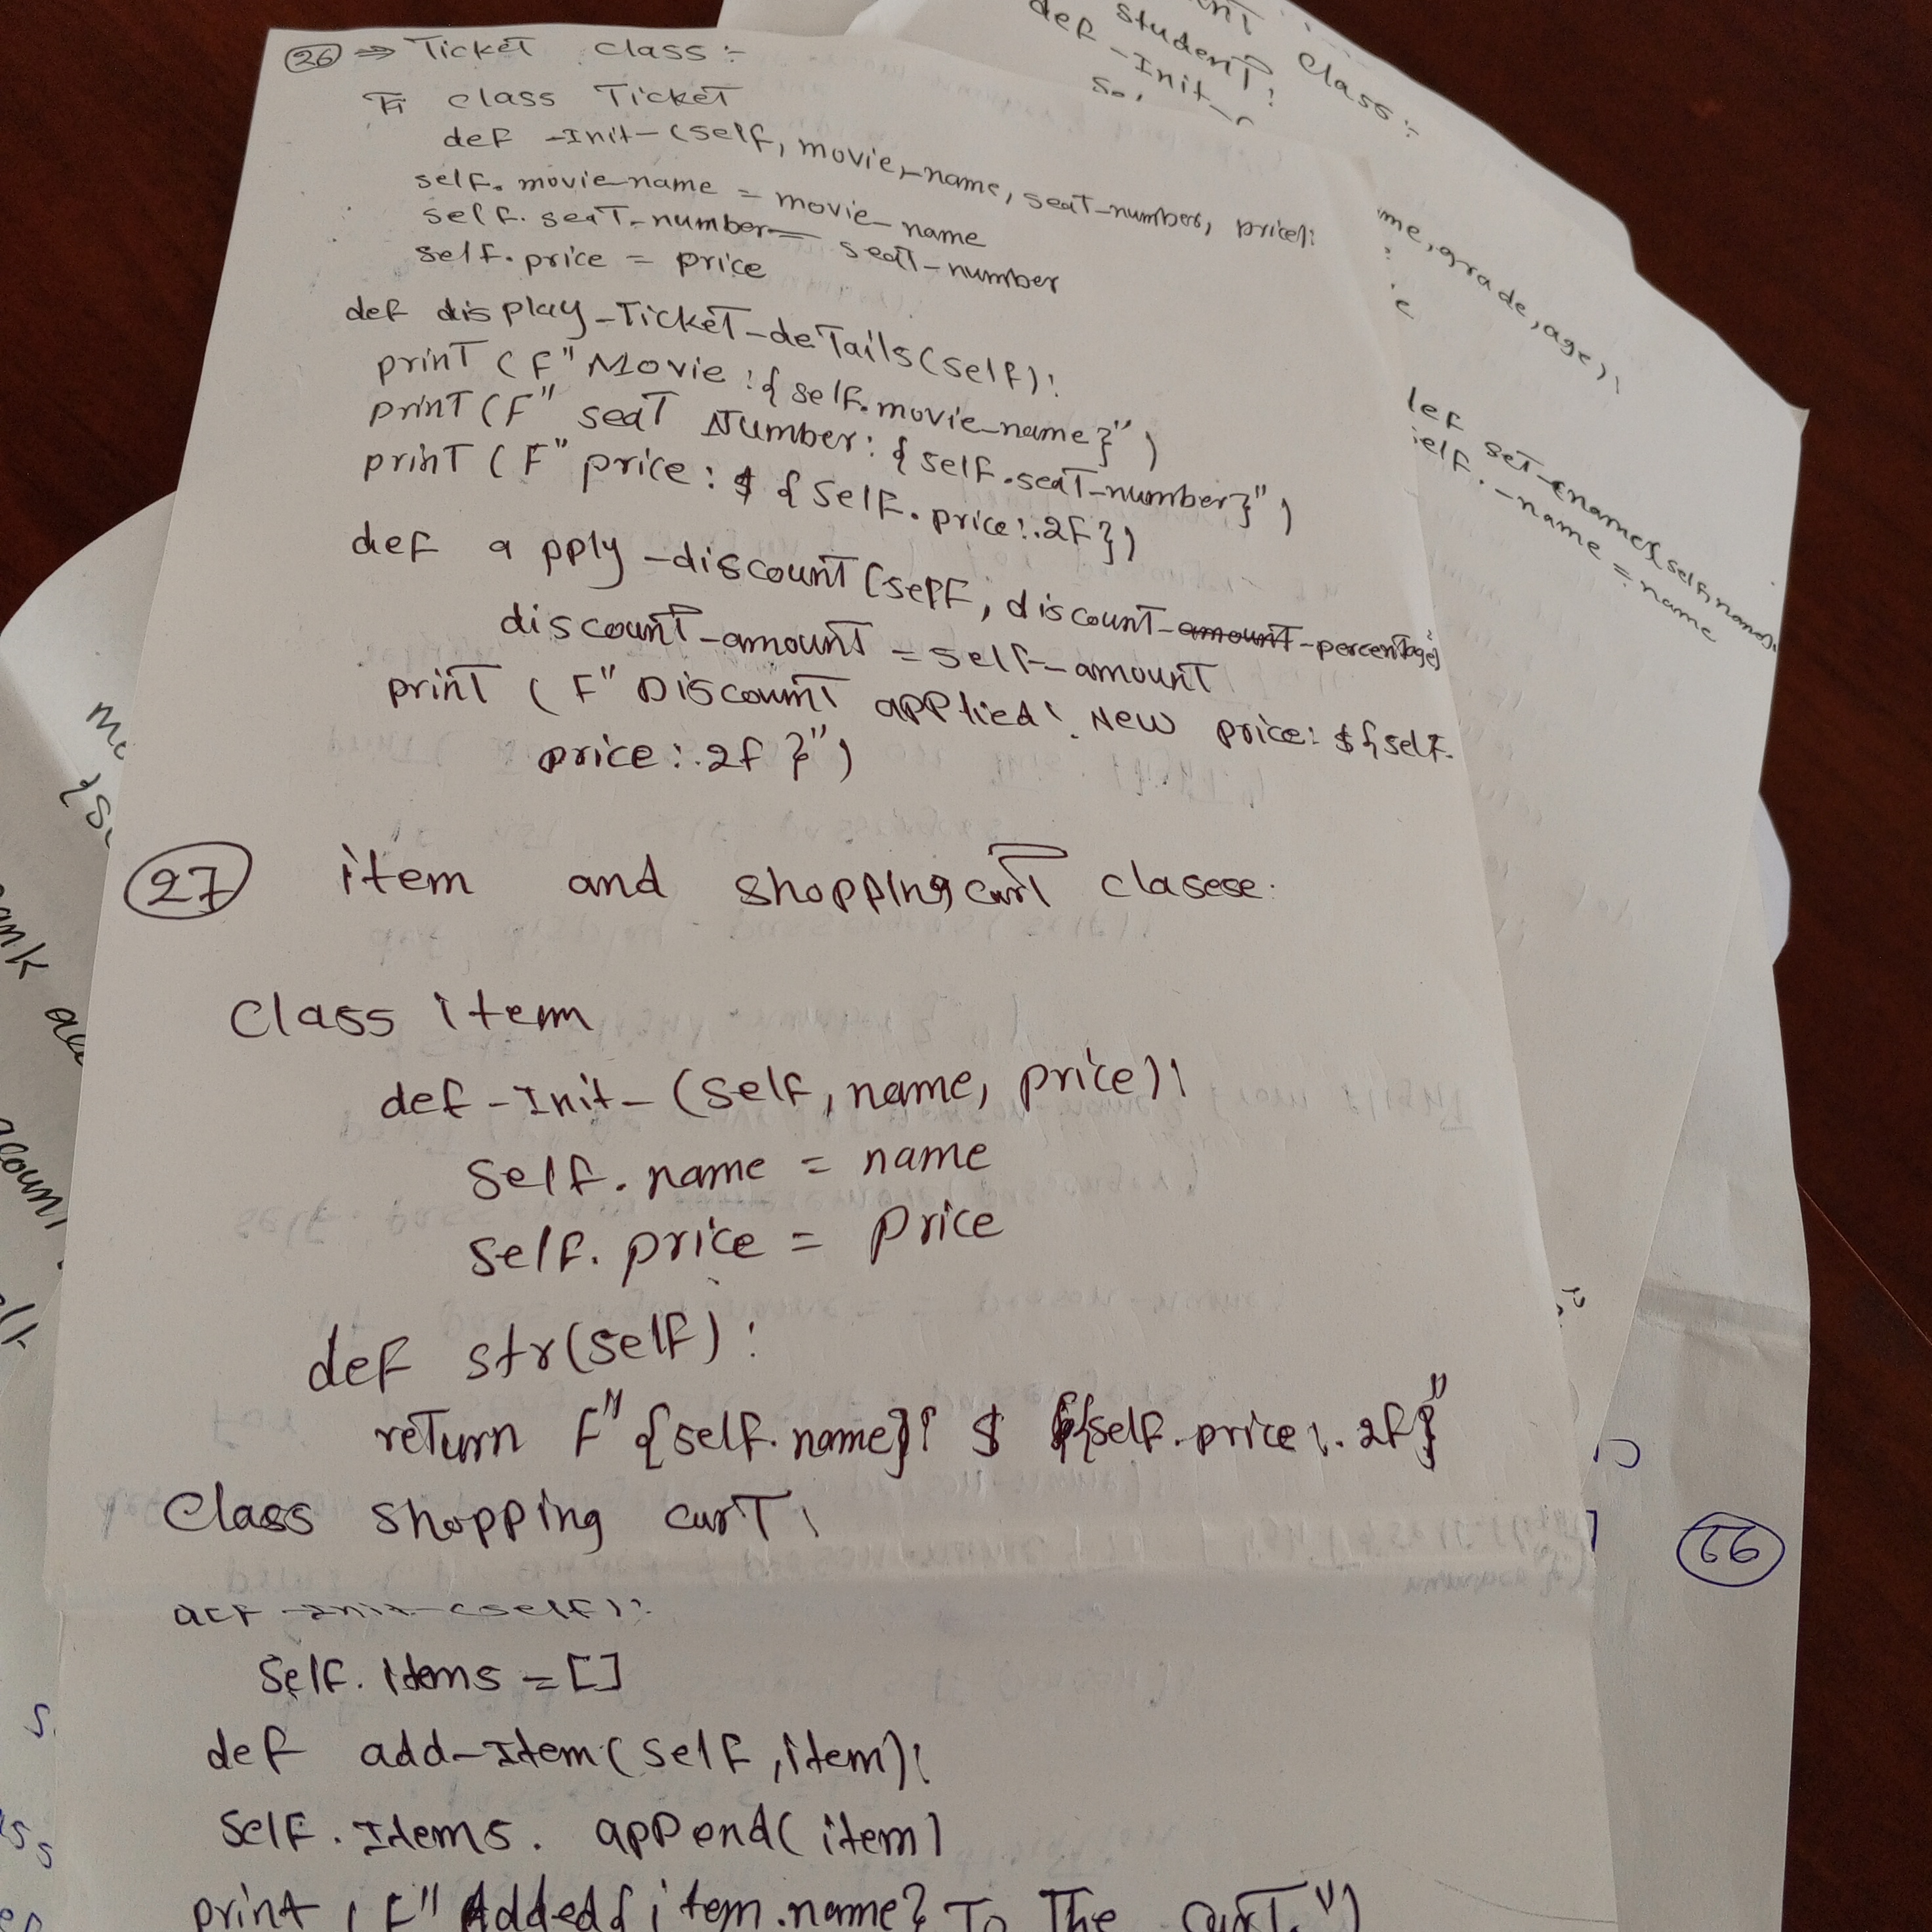 26 ⇒ Ticket class :-
class Ticket
def -Init-(self, movie-name, seat-number, price):
self. movie-name = movie-name
self. seat-number = seat-number
self. price = price
def display-Ticket-details(self):
print (F" Movie :{self.movie-name}")
print (F" seat Number: {self.seat-number}")
print (F" price : $ {self.price:.2F})
def apply-discount(self, discount-amount-percentage)
discount-amount = self-amount
print (F" Discount applied! New price: ${self.
price:.2f }")
27 item and shoppingcart clasese.
class item
def -Init-(self, name, price):
self. name = name
self. price = price
def str(self):
return F"{self.name}: $ {self.price:.2f}"
Class shopping curt:
def -Init-(self):
self. items = []
def add-Item(self, item):
self. Items. append(item)
print (F" Added {item.name} To The curt.")
student:
class :-
def -Init-
me, grade, age):
def set-name(self, name):
self.-name = name
ank
count
66